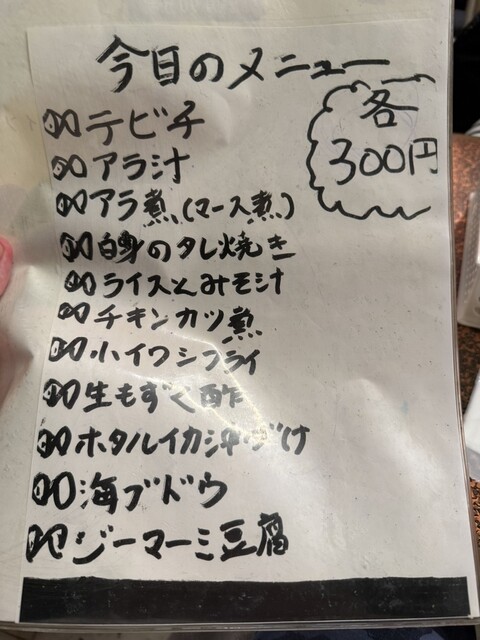 今日のメニュー
各
300円
テビチ
アラ汁
アラ煮(マース煮)
白身のタレ焼き
ライスとみそ汁
チキンカツ煮
小イワシフライ
生もずく酢
ホタルイカ沖づけ
海ブドウ
ジーマーミ豆腐